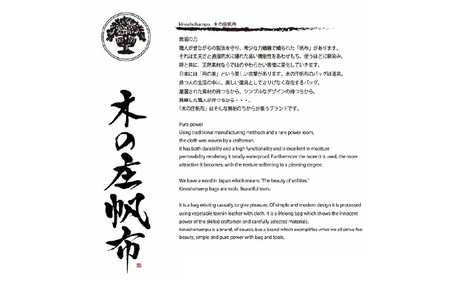 木の庄帆布
kinoshohampu 木の庄帆布
無垢の力
職人が昔ながらの製法を守り、希少な力織機で織られた「帆布」があります。
それは丈夫さと通湿防水に優れた高い機能性をあわせもち、使うほどに馴染み、
時と共に、天然素材ならではのやわらかい表情に変化していきます。
日本には「用の美」という美しい言葉があります。木の庄帆布のバッグは道具。
持つ人の生活の中に、美しい道具としてさりげなく存在するバッグ。
厳選された素材の持つちから、シンプルなデザインの持つちから、
熟練した職人が持つちから・・・。
「木の庄帆布」はそんな無垢のちからが集うブランドです。
Pure power
Using traditional manufacturing methods and a rare power loom,
the cloth was woven by a craftsman.
It has both durability and a high functionality and is excellent in moisture
permeability rendering it totally waterproof. Furthermore the more it is used, the more
attractive it becomes, with the texture softening to a pleasing degree.
We have a word in Japan which means: "The beauty of utilities."
Kinoshohamp bags are tools. Beautiful tools.
It is a bag existing casually to give pleasure. Of simple and modern design it is processed
using vegetable tannin leather with cloth. It is a lifelong bag which shows the innocent
power of the skilled craftsmen and carefully selected materials.
Kinoshohampu is a brand, of course, but a brand which exemplifies what we all strive for:
beauty, simple and pure power with bag and tools.